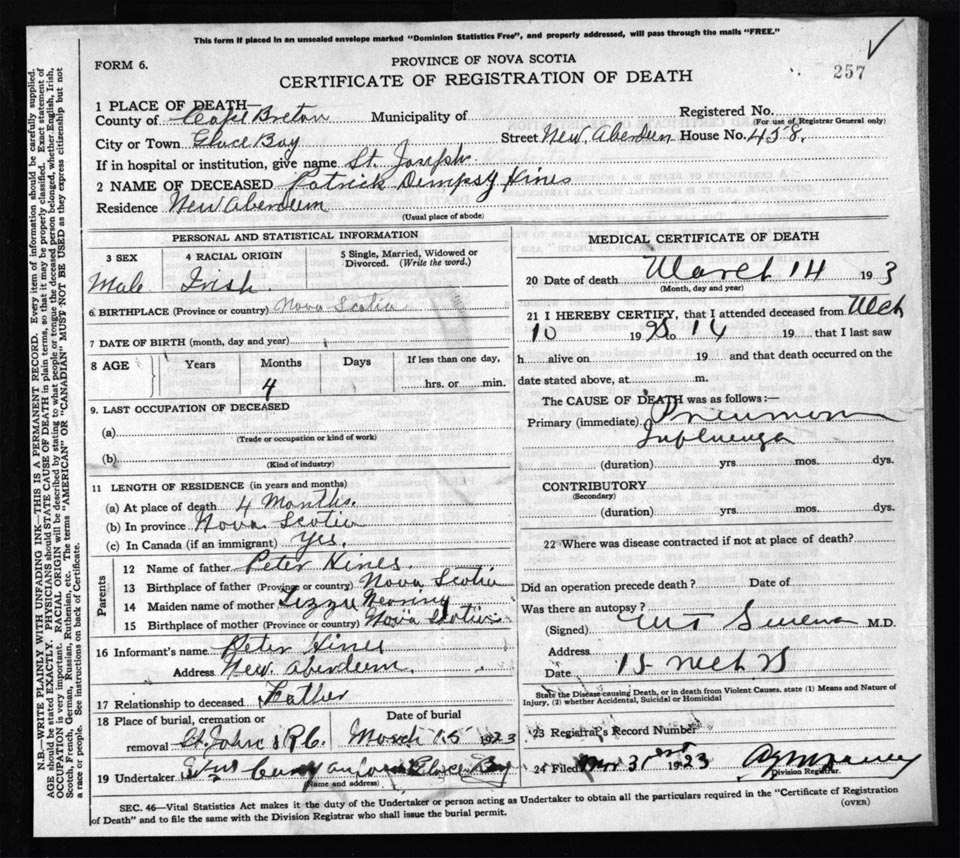 This form if placed in an unsealed envelope marked "Dominion Statistics Free", and properly addressed, will pass through the mails "FREE."
FORM 6.
PROVINCE OF NOVA SCOTIA
257
CERTIFICATE OF REGISTRATION OF DEATH
1 PLACE OF DEATH—
County of Cape Breton Municipality of Registered No.
(For use of Registrar General only)
City or Town Glace Bay Street New Aberdeen House No. 458.
If in hospital or institution, give name St. Joseph
2 NAME OF DECEASED Patrick Dempsy Hines
Residence New Aberdeen
(Usual place of abode)
PERSONAL AND STATISTICAL INFORMATION
3 SEX 4 RACIAL ORIGIN 5 Single, Married, Widowed or Divorced. (Write the word.)
Male Irish.
6. BIRTHPLACE (Province or country) Nova Scotia
7 DATE OF BIRTH (month, day and year)
8 AGE Years Months Days If less than one day,
4 hrs. or min.
9. LAST OCCUPATION OF DECEASED
(a)
(Trade or occupation or kind of work)
(b)
(Kind of industry)
11 LENGTH OF RESIDENCE (in years and months)
(a) At place of death 4 Months.
(b) In province Nova Scotia
(c) In Canada (if an immigrant) yes.
Parents
12 Name of father Peter Hines.
13 Birthplace of father (Province or country) Nova Scotia
14 Maiden name of mother Lizzie
15 Birthplace of mother (Province or country) Nova Scotia
16 Informant's name Peter Hines
Address New Aberdeen.
17 Relationship to deceased Father
18 Place of burial, cremation or Date of burial
removal St. Johns R C. March 15 1923
19 Undertaker Glace Bay
(Name and address)
MEDICAL CERTIFICATE OF DEATH
20 Date of death March 14 193
(Month, day and year)
21 I HEREBY CERTIFY, that I attended deceased from Mch
10 19 to 14 19 that I last saw
h alive on 19 and that death occurred on the
date stated above, at m.
The CAUSE OF DEATH was as follows:—
Primary (immediate) Pneumonia
Influenza
(duration) yrs. mos. dys.
CONTRIBUTORY
(Secondary)
(duration) yrs. mos. dys.
22 Where was disease contracted if not at place of death?
Did an operation precede death? Date of
Was there an autopsy?
(Signed) M.D.
Address
Date 15 Mch 23
State the Disease causing Death, or in death from Violent Causes, state (1) Means and Nature of Injury, (2) whether Accidental, Suicidal or Homicidal
23 Registrar's Record Number
24 Filed Mar 31st 1923
Division Registrar.
SEC. 46—Vital Statistics Act makes it the duty of the Undertaker or person acting as Undertaker to obtain all the particulars required in the "Certificate of Registration
of Death" and to file the same with the Division Registrar who shall issue the burial permit. (OVER)
N.B.—WRITE PLAINLY WITH UNFADING INK—THIS IS A PERMANENT RECORD. Every item of information should be carefully supplied.
AGE should be stated EXACTLY. PHYSICIANS should STATE CAUSE OF DEATH in plain terms, so that it may be properly classified. Exact statement of
OCCUPATION is very important. RACIAL ORIGIN will be described by stating to what people or tongue the deceased person belonged, whether English, Irish,
Scotch, French, German, Russian, Ruthenian, etc. The terms "AMERICAN" OR "CANADIAN" MUST NOT BE USED as they express citizenship but not
a race or people. See instructions on back of Certificate.